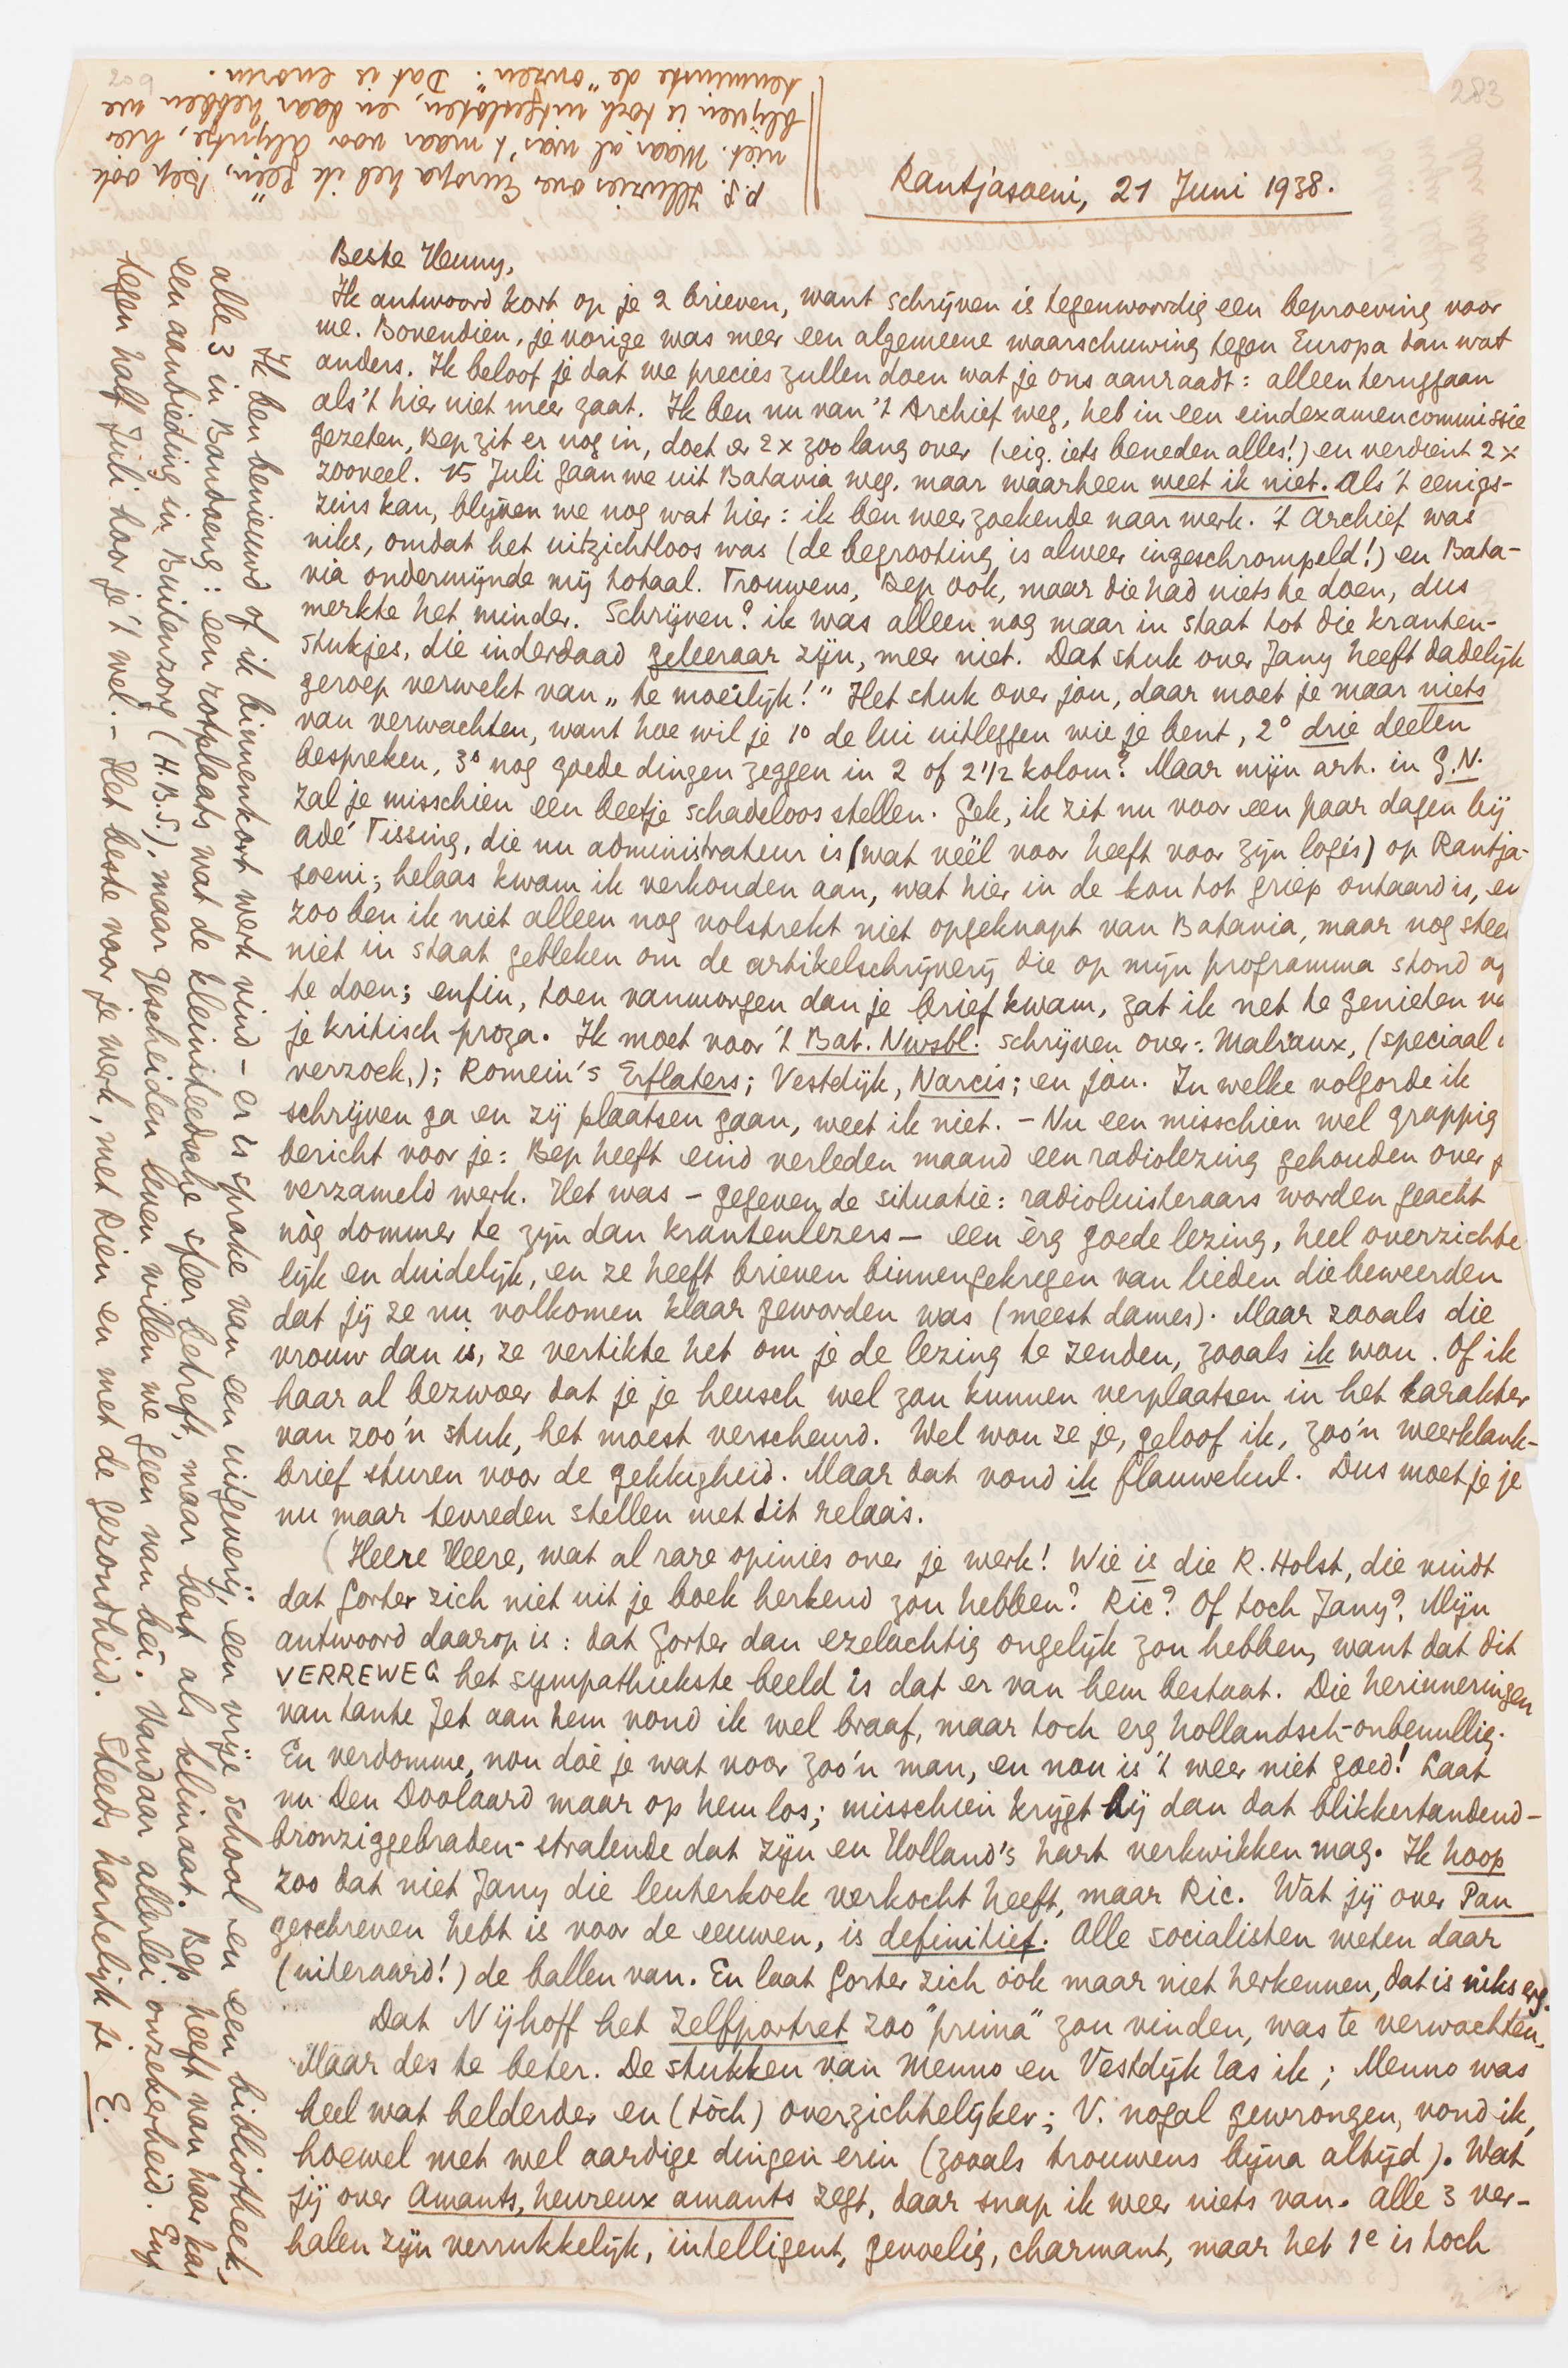 283
Rantjasoeni, 21 Juni 1938.
Beste Henny,
Ik antwoord kort op je 2 brieven, want schrijven is tegenwoordig een beproeving voor
me. Bovendien, je vorige was meer een algemeene waarschuwing tegen Europa dan wat
anders. Ik beloof je dat we precies zullen doen wat je ons aanraadt: alleen teruggaan
als 't hier niet meer gaat. Ik ben nu van 't Archief weg, heb in een eindexamencommissie
gezeten, Bep zit er nog in, doet er 2 x zoo lang over (eig. iets beneden alles!) en verdient 2 x
zooveel. 15 Juli gaan we uit Batavia weg, maar waarheen weet ik niet. Als 't eenigs-
zins kan, blijven we nog wat hier: ik ben weer zoekende naar werk. 't Archief was
niks, omdat het uitzichtloos was (de begrooting is alweer ingeschrompeld!) en Bata-
via ondermijnde mij totaal. Trouwens, Bep ook, maar die had niets te doen, dus
merkte het minder. Schrijven? ik was alleen nog maar in staat tot die kranten-
stukjes, die inderdaad geleeraar zijn, meer niet. Dat stuk over Jany heeft dadelijk
geroep verwekt van „te moeilijk!" Het stuk over jou, daar moet je maar niets
van verwachten, want hoe wil je 1º de lui uitleggen wie je bent, 2º drie deelen
bespreken, 3º nog goede dingen zeggen in 2 of 2 1/2 kolom? Maar mijn art. in G.N.
zal je misschien een beetje schadeloos stellen. Gek, ik zit nu voor een paar dagen bij
Adé Tissing, die nu administrateur is (wat véél voor heeft voor zijn logés) op Rantja-
soeni; helaas kwam ik verkouden aan, wat hier in de kou tot griep ontaard is, en
zoo ben ik niet alleen nog volstrekt niet opgeknapt van Batavia, maar nog stee
niet in staat gebleken om de artikelschrijverij die op mijn programma stond a
te doen; enfin, toen vanmorgen dan je brief kwam, zat ik net te genieten v
je kritisch proza. Ik moet voor 't Bat. Nwsbl. schrijven over: Malraux, (speciaal
verzoek,); Romein's Erflaters; Vestdijk, Narcis; en jou. In welke volgorde ik
schrijven ga en zij plaatsen gaan, weet ik niet. – Nu een misschien wel grappig
bericht voor je: Bep heeft eind verleden maand een radiolezing gehouden over
verzameld werk. Het was – gegeven de situatie: radioluisteraars worden geacht
nòg dommer te zijn dan krantenlezers – een èrg goede lezing, heel overzichte-
lijk en duidelijk, en ze heeft brieven binnengekregen van lieden die beweerden
dat jij ze nu volkomen klaar geworden was (meest dames). Maar zooals die
vrouw dan is, ze vertikte het om je de lezing te zenden, zooals ik wou. Of ik
haar al bezwoer dat je je heusch wel zou kunnen verplaatsen in het karakter
van zoo'n stuk, het moest verscheurd. Wel wou ze je, geloof ik, zoo'n weerklank-
brief sturen voor de gekkigheid. Maar dat vond ik flauwekul. Dus moet je je
nu maar tevreden stellen met dit relaas.
(Heere Heere, wat al rare opinies over je werk! Wie is die R. Holst, die vindt
dat Gorter zich niet uit je boek herkend zou hebben? Ric? Of toch Jany? Mijn
antwoord daarop is: dat Gorter dan ezelachtig ongelijk zou hebben, want dat dit
VERREWEG het sympathiekste beeld is dat er van hem bestaat. Die herinneringen
van tante Jet aan hem vond ik wel braaf, maar toch erg hollandsch-onbenullig.
En verdomme, nou doe je wat voor zoo'n man, en nou is 't weer niet goed! Laat
nu Den Doolaard maar op hem los; misschien krijgt hij dan dat blikkertandend-
bronziggebraden-stralende dat zijn en Holland's hart verkwikken mag. Ik hoop
zoo dat niet Jany die leuterkoek verkocht heeft, maar Ric. Wat jij over Pan
geschreven hebt is voor de eeuwen, is definitief. Alle socialisten weten daar
(uiteraard!) de ballen van. En laat Gorter zich óók maar niet herkennen, dat is niks erg.
Dat Nijhoff het Zelfportret zoo "prima" zou vinden, was te verwachten.
Maar des te beter. De stukken van Menno en Vestdijk las ik; Menno was
heel wat helderder en (tòch) overzichtelijker; V. nogal gewrongen, vond ik,
hoewel met wel aardige dingen erin (zooals trouwens bijna altijd). Wat
jij over Amants, heureux amants zegt, daar snap ik weer niets van. Alle 3 ver-
halen zijn verrukkelijk, intelligent, gevoelig, charmant, maar het 1e is toch
Ik ben benieuwd of ik binnenkort werk vind – er is sprake van een uitgeverij, een vrije school en een bibliotheek,
alle 3 in Bandoeng: een rotplaats wat de kleinsteedsche sfeer betreft, maar best als klimaat. Bep heeft van haar kan
een aanbieding in Buitenzorg (H.B.S.), maar gescheiden leven willen we geen van bei. Vandaar allerlei onzekerheid. Enf
tegen half Juli hoor je 't wel. – Het beste voor je werk, met Rien en met de gezondheid. Steeds hartelijk je E.
P.S. Illuzies over Europa heb ik géén, Bep ook
niet. Maar al was 't maar voor Alijntje, hier
blijven is toch uitgesloten, en daar hebben we
tenminste de "onzen". Dat is enorm.